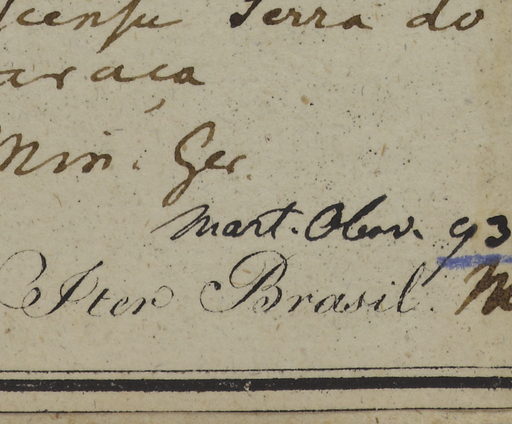 Serra do
araça
Min. Ger.
Mart. Obsv. 93
Iter Brasil.